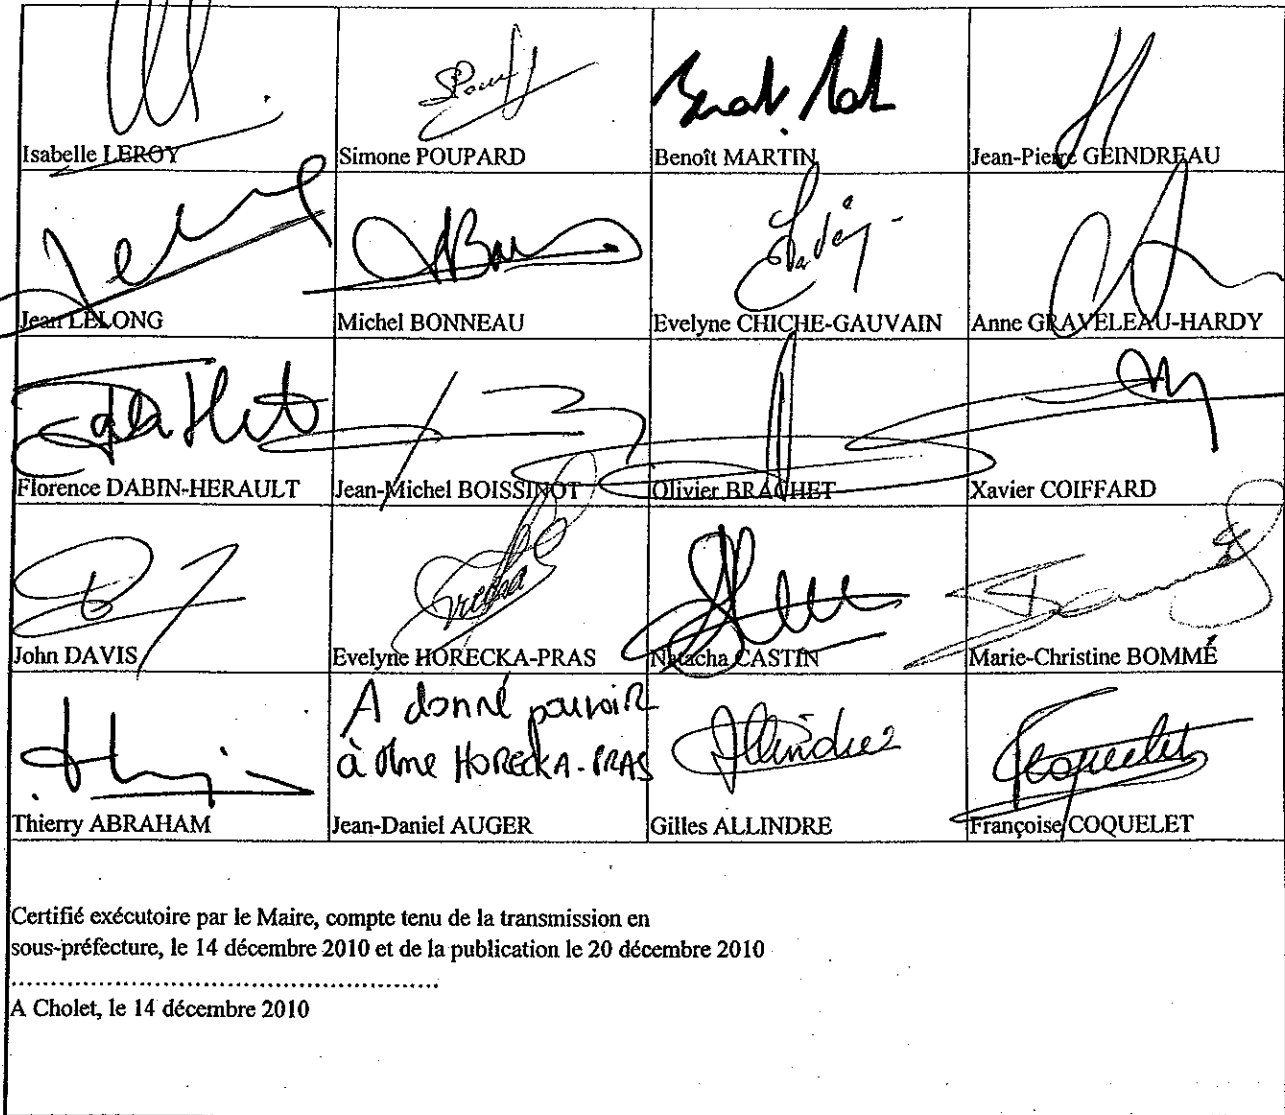 Isabelle LEROY
Simone POUPARD
Benoît MARTIN
Jean-Pierre GEINDREAU
Jean LELONG
Michel BONNEAU
Evelyne CHICHE-GAUVAIN
Anne GRAVELEAU-HARDY
Florence DABIN-HERAULT
Jean-Michel BOISSINOT
Olivier BRACHET
Xavier COIFFARD
John DAVIS
Evelyne HORECKA-PRAS
Natacha CASTIN
Marie-Christine BOMMÉ
Thierry ABRAHAM
A donné pouvoir
à Mme HORECKA-PRAS
Jean-Daniel AUGER
Allindre
Gilles ALLINDRE
Coquelet
Françoise COQUELET
Certifié exécutoire par le Maire, compte tenu de la transmission en
sous-préfecture, le 14 décembre 2010 et de la publication le 20 décembre 2010
A Cholet, le 14 décembre 2010